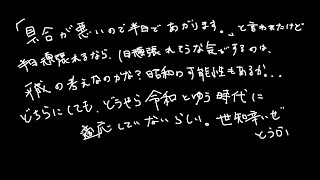 「具合が悪いので半日であがります。」と言われたけど
半日頑張れるなら、1日頑張れそうな気がするのは、
の考えなのかな?昭和の可能性もあるか…
どちらにしても、どうやら令和とゆう時代に
適応していないらしい。世知辛いぜ
とうか